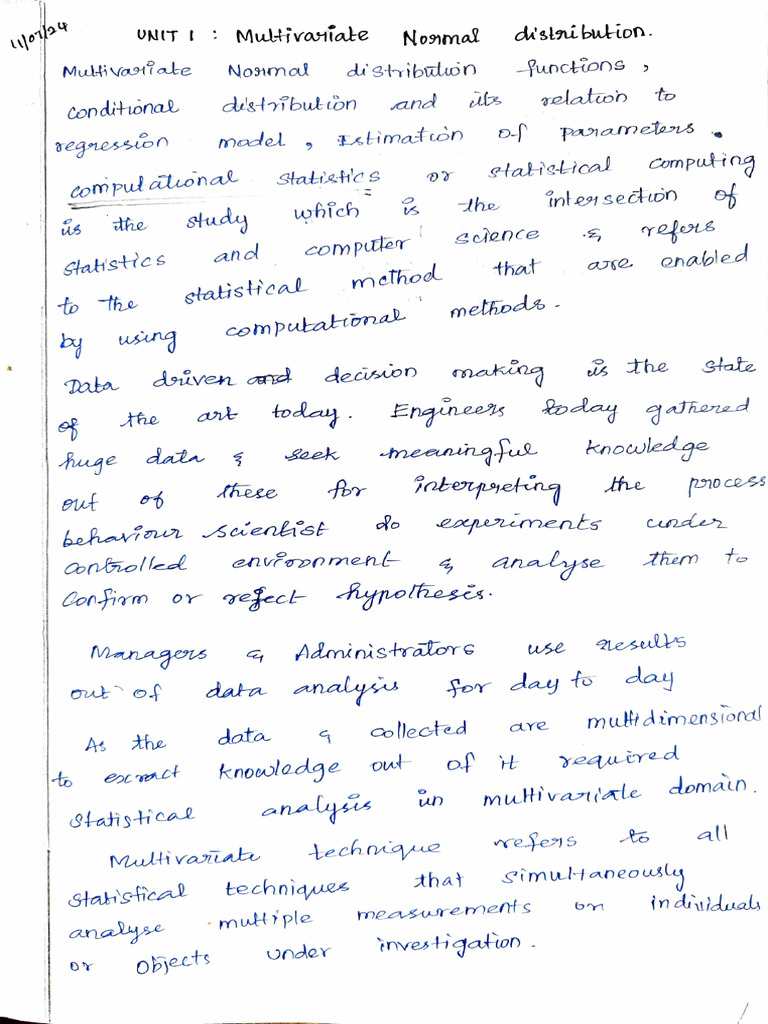 11/07/24
UNIT 1 : Multivariate Normal distribution.
Multivariate Normal distribution functions,
conditional distribution and its relation to
regression model, Estimation of parameters.
computational statistics or statistical computing
is the study which is the intersection of
statistics and computer science & refers
to the statistical method that are enabled
by using computational methods.
Data driven and decision making is the state
of the art today. Engineers today gathered
huge data & seek meaningful knowledge
out of these for interpreting the process
behaviour scientist do experiments under
controlled environment & analyse them to
Confirm or reject hypothesis.
Managers & Administrators use results
out of data analysis for day to day
As the data & collected are multidimensional
to exract knowledge out of it required
statistical analysis in multivariate domain.
Multivariate technique refers to all
statistical techniques that simultaneously
analyse multiple measurements on individuals
or objects under investigation.